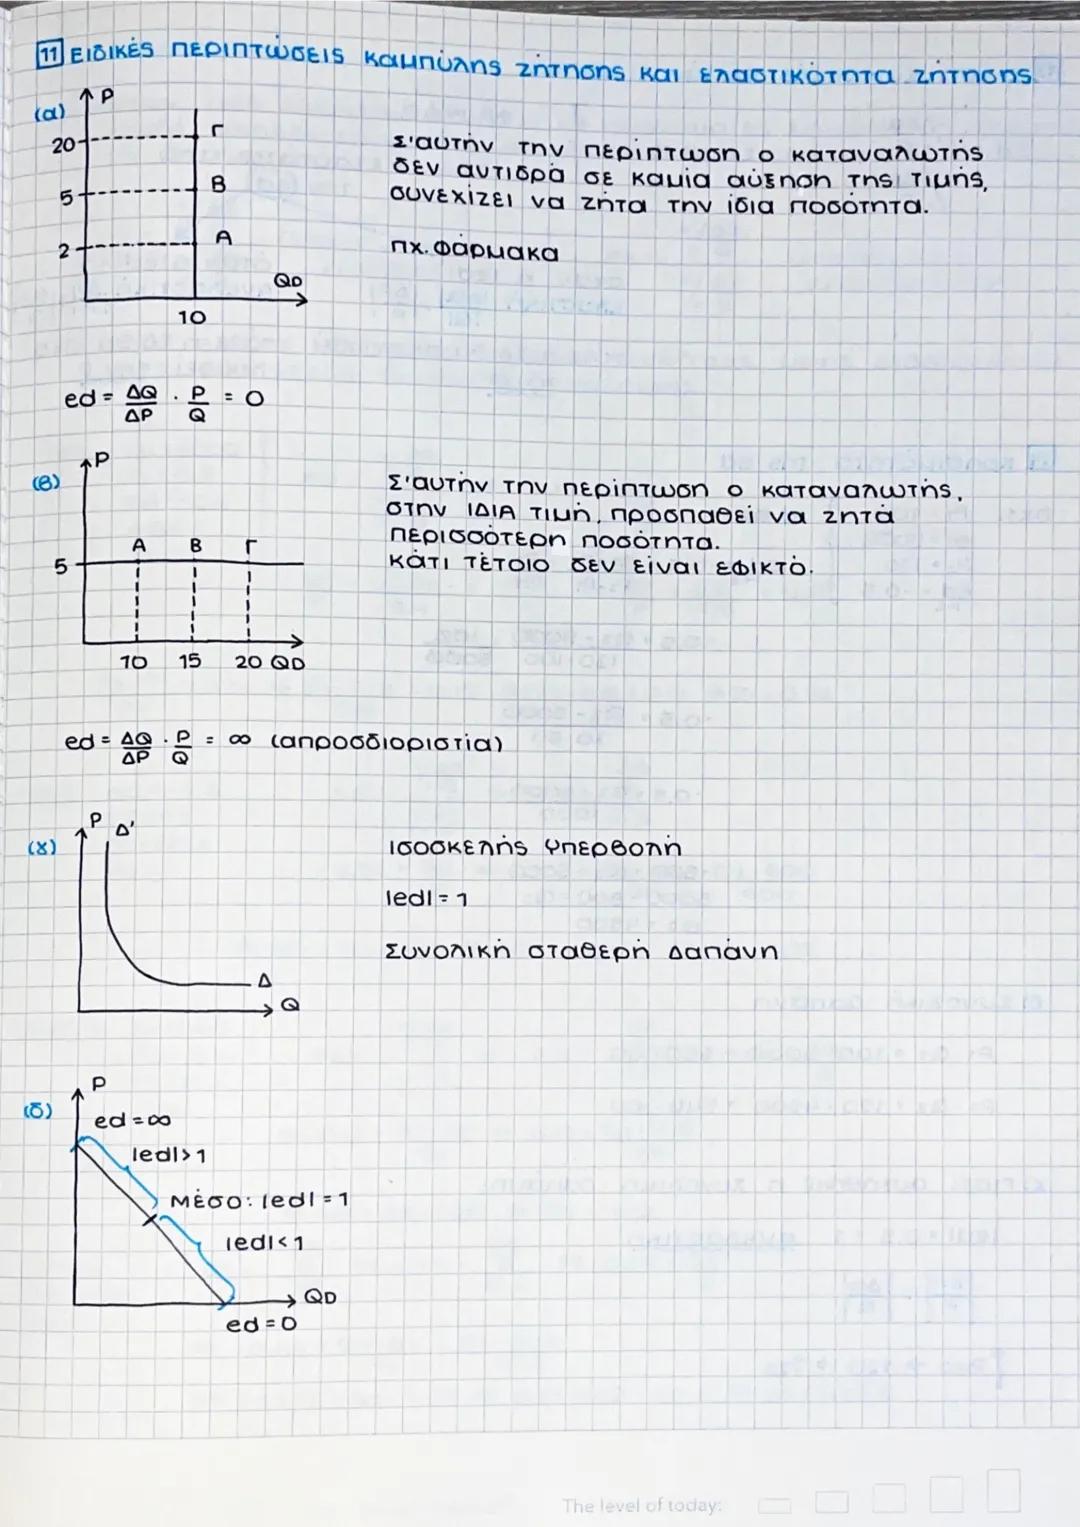 11 ΕΙΔΙΚΈΣ ΠΕΡΙΠΤΏΣΕΙΣ ΚΑΜΠΎΛΗΣ ΖΉΤΗΣΗΣ ΚΑΙ ΕΛΑΣΤΙΚΌΤΗΤΑ ΖΉΤΗΣΗΣ.
(α)
P
20
Γ
5
B
2
A
QD
10
Σ'αυτήν την περίπτωση ο καταναλωτής
δεν αντιδρά σε καμία αύξηση της τιμής,
συνεχίζει να ζητά την ίδια ποσότητα.
πχ. Φάρμακα
ed = ΔQ/ΔP · P/Q = 0
(β)
P
A B Γ
5
10 15 20 QD
Σ'αυτήν την περίπτωση ο καταναλωτής,
στην ΙΔΙΑ τιμή, προσπαθεί να ζητά
περισσότερη ποσότητα.
Κάτι τέτοιο δεν είναι εφικτό.
ed = ΔQ/ΔP · P/Q = ∞ (απροσδιοριστία)
(γ)
P Δ'
Δ
Q
Ισοσκελής Υπερβολή
|ed| = 1
Συνολική σταθερή Δαπάνη
(δ)
P
ed = ∞
|ed| > 1
Μέσο: |ed| = 1
|ed| < 1
QD
ed = 0
The level of today: